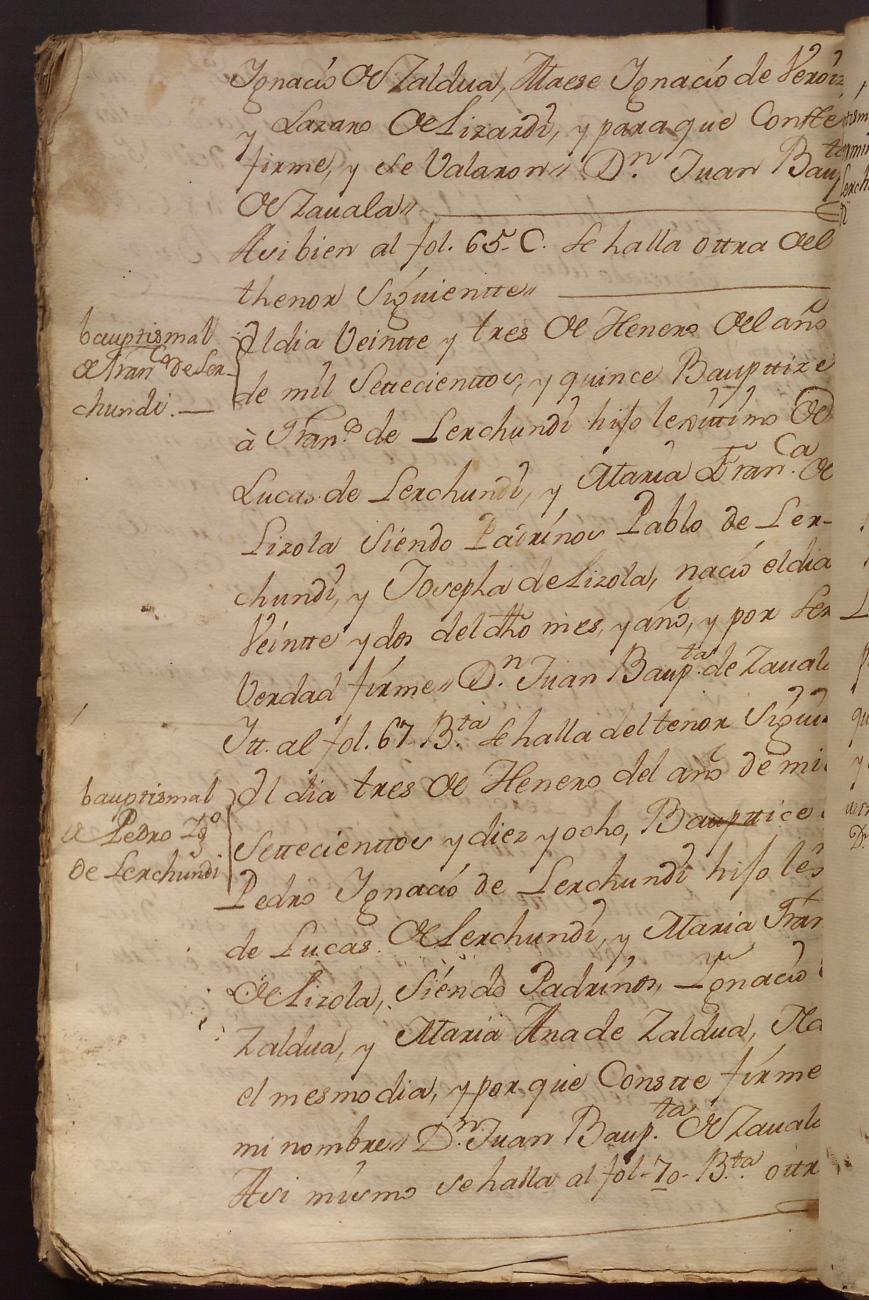 Ignacio de Zaldua, Maese Ignacio de
y Lazaro de Lizardi, y para que Constte
firme, y se Valaron // Dn. Juan Baupta
de Zauala //
Asi bien al fol. 65. C. se halla ottra del
thenor Siguientte //
bauptismal
de Franco. de Ler-
chundi. —
El dia Veintte y tres de Henero del año
de mil Settecienttos, y quince Baupttize
à Franco. de Lerchundi hijo lexittimo de
Lucas de Lerchundi, y Maria Franca. de
Lizola siendo Padrinos Pablo de Ler-
chundi, y Josepha de Lizola, nació el dia
Veintte y dos del dho mes, y año, y por ser
Verdad firme // Dn. Juan Baupta. de Zauala
Itt. al fol. 67. Bta. se halla del tenor Sigui
bauptismal
de Pedro Igo
de Lerchundi
El dia tres de Henero del año de mil
Settecienttos y diez y ocho, Baupttice
Pedro Ignacio de Lerchundi hijo
de Lucas de Lerchundi, y Maria Fran
de Lizola, Siendo Padrinos, Ignacio
Zaldua, y Maria Ana de Zaldua, Na
el mesmo dia, y porque Constte firme
mi nombre // Dn. Juan Baupta. de Zauala
Asi mismo se halla al fol. 70. Bta. ottr